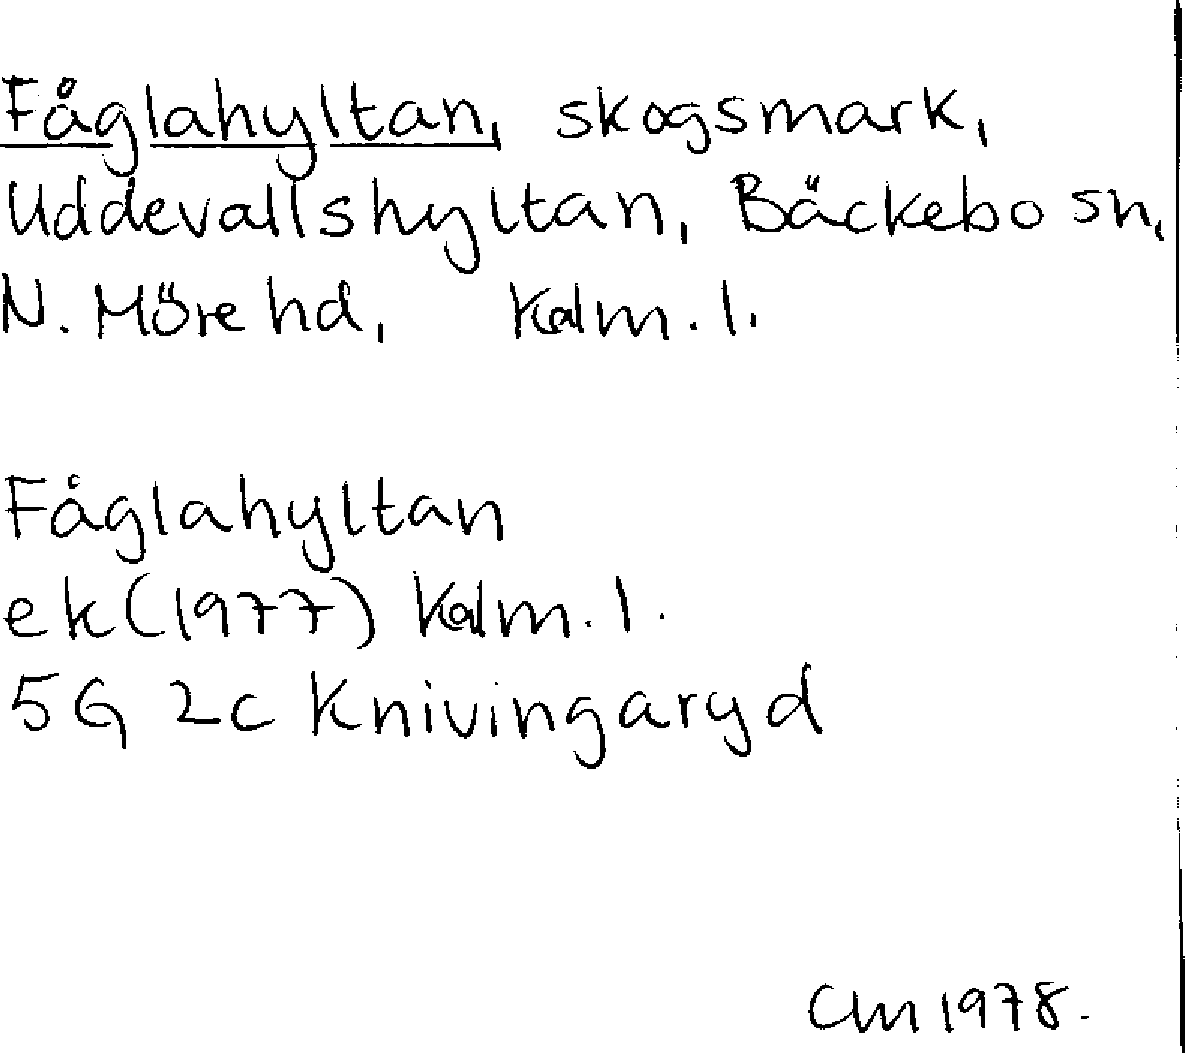 Fåglahyltan, skogsmark,
Uddevallshyltan, Bäckebo sn,
N. Möre hd, Kalm. l.
Fåglahyltan
ek (1977) Kalm. l.
5G 2c Knivingaryd
CM 1978.